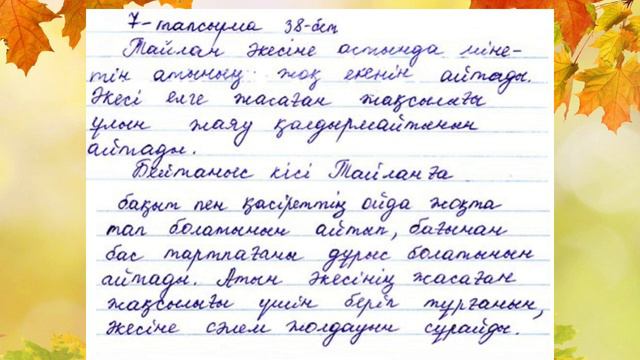 7-тапсырма 38-бет
Тайлан әкесіне астында міне-
тін атының жоқ екенін айтады.
Әкесі елге жасаған жақсылығы
ұлын жаяу қалдырмайтынын
айтады.
Бейтаныс кісі Тайланға
бақыт пен қасіреттің ойда жоқта
тап болатынын айтып, бағынан
бас тартпағаны дұрыс болатынын
айтады. Атын әкесінің жасаған
жақсылығы үшін беріп тұрғанын,
әкесіне сәлем жолдауын сұрайды.